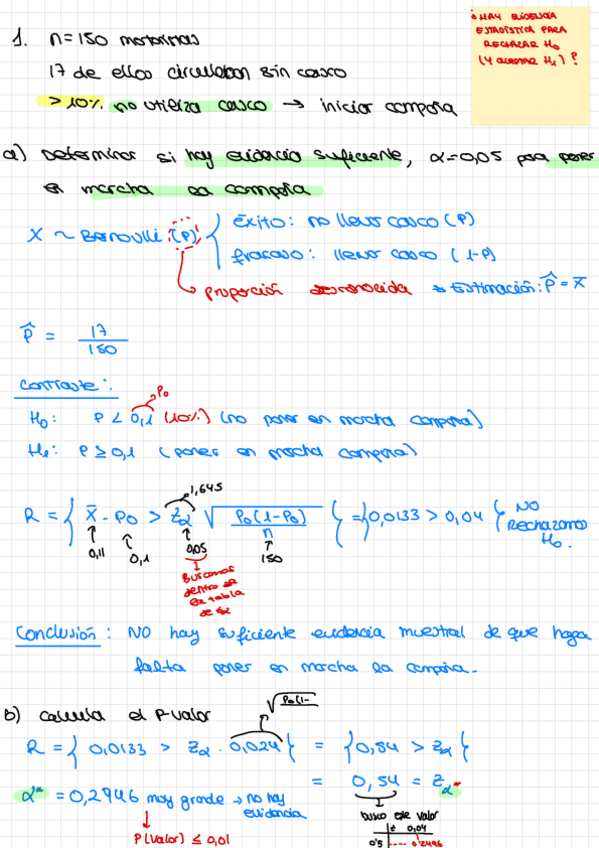 ¿HAY EVIDENCIA
ESTADÍSTICA PARA
RECHAZAR H₀
(Y ACEPTAR H₁)?
1. n=150 motoristas
17 de ellos circulaban sin casco
>10% no utiliza casco → iniciar campaña
a) Determinar si hay evidencia suficiente, α=0,05 para poner
en marcha la campaña
X ~ Bernoulli (P) { éxito: no llevar casco (P)
fracaso: llevar casco (1-P)
proporción desconocida → Estimación: P̂ = X̄
P̂ = 17/150
Contraste:
P₀
H₀: P < 0,1 (10%) (no poner en marcha campaña)
H₁: P ≥ 0,1 (poner en marcha campaña)
1,645
R = { X̄ - P₀ > Zα √(P₀(1-P₀)/n) } = {0,0133 > 0,04} NO Rechazamos H₀.
0,11 0,1 0,05 150
Buscamos
dentro de
la tabla
Conclusión: NO hay suficiente evidencia muestral de que haga
falta poner en marcha la campaña.
b) Calcula el P-valor
√P₀(1-
R = { 0,0133 > Zα · 0,024 } = {0,54 > Zα}
= 0,54 = Zα*
α* = 0,2946 muy grande → no hay
evidencia
P(valor) ≤ 0,01
busco este valor
z 0,04
0'5 ---- 0'2946